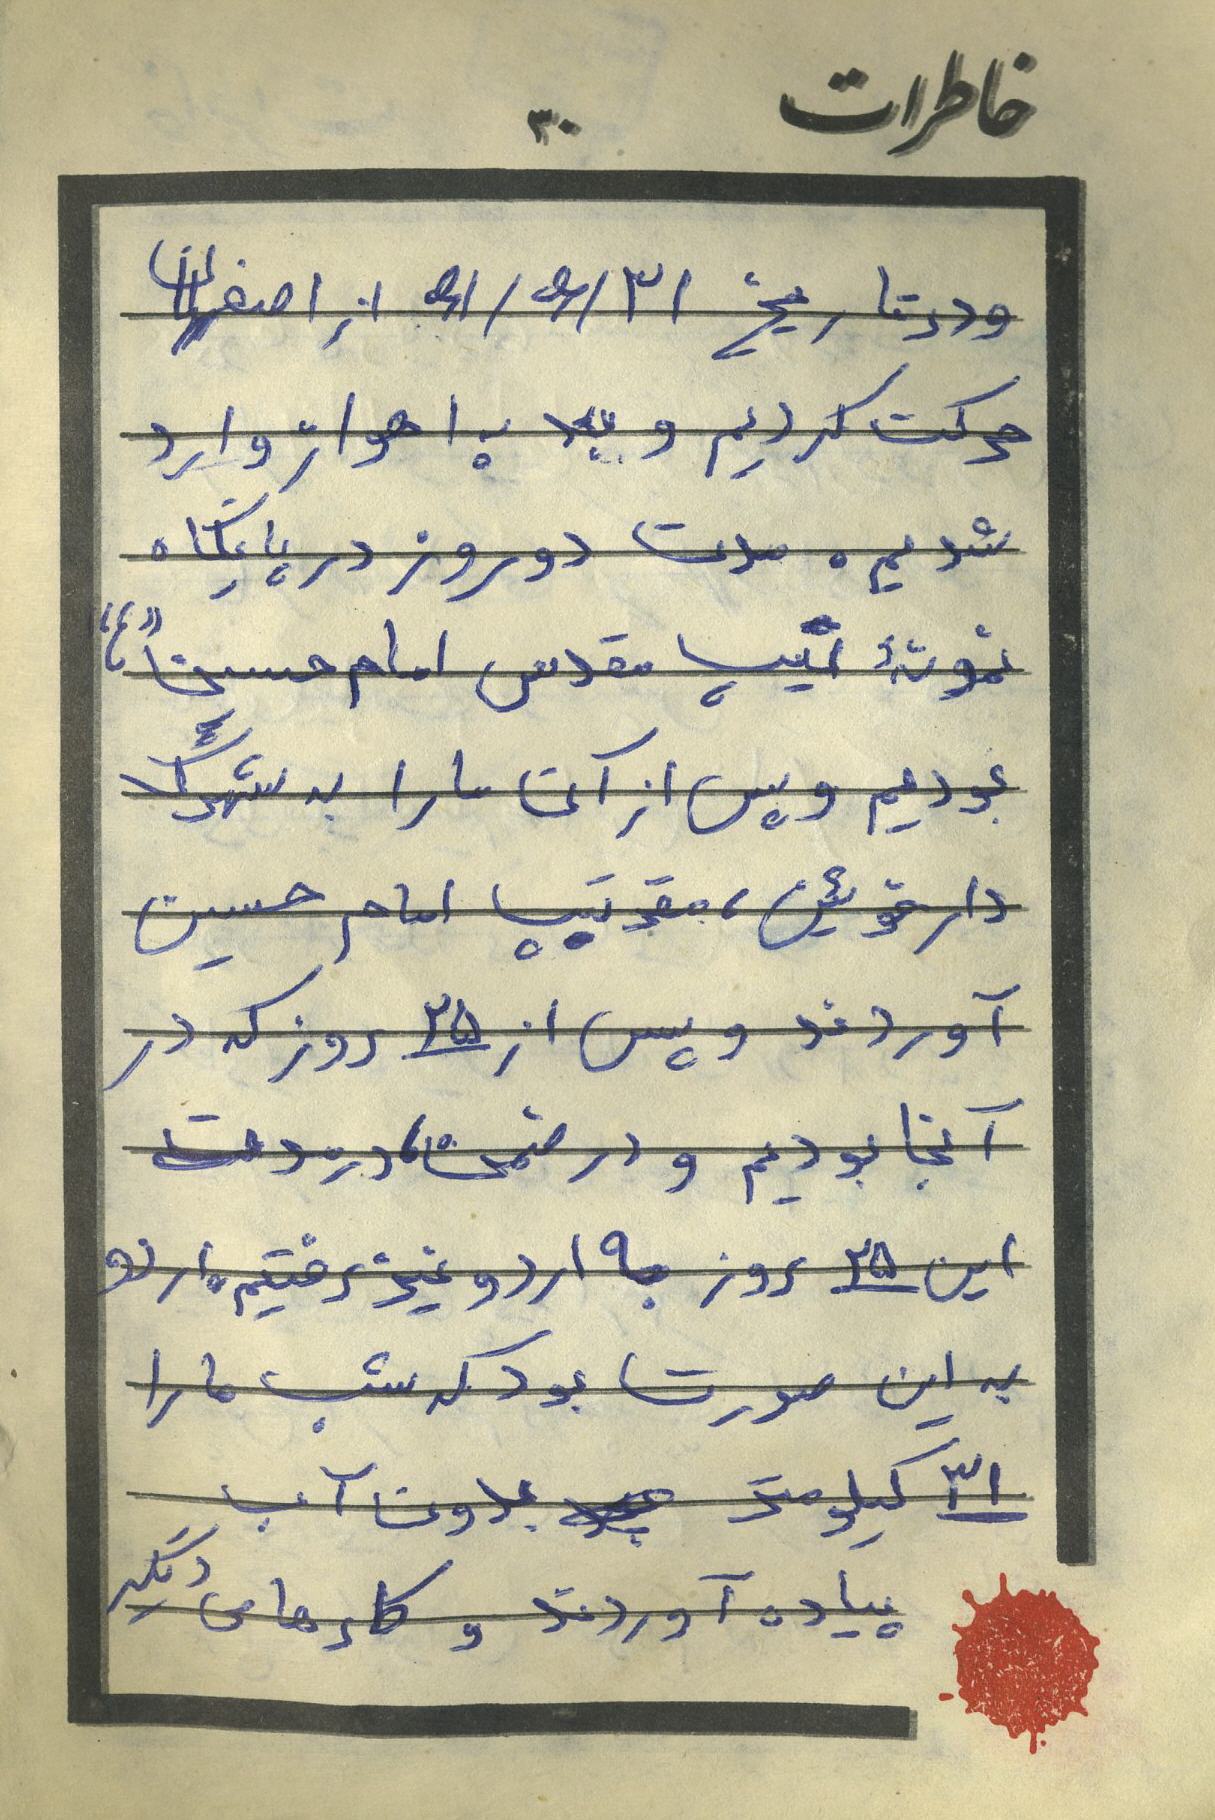 خاطرات
۳۰
ودرتاریخ ۶۱/۶/۳۱ از اصفهان
حرکت کردیم و بعد به اهواز وارد
شدیم. مدت دو روز در پایگاه
نمونهٔ تیپ مقدس امام حسین "ع"
بودیم و پس از آن ما را به شهرک
دارخوئین، مقر تیپ امام حسین
آوردند و پس از ۲۵ روز که در
آنجا بودیم و در ضمن، در مدت
این ۲۵ روز به اردو نیز رفتیم. اردو
به این صورت بود که شب ما را
۳۱ کیلومتر بدون آب
پیاده آوردند و کارهای دیگر